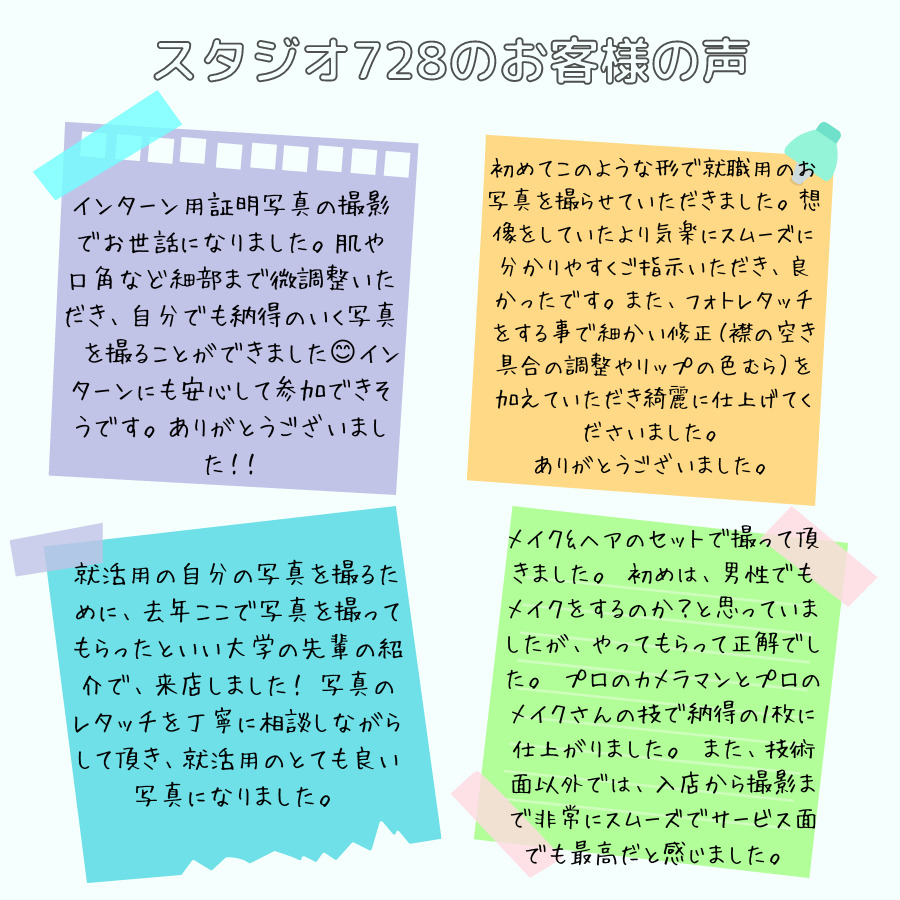 スタジオ728のお客様の声
インターン用証明写真の撮影
でお世話になりました。肌や
口角など細部まで微調整いた
だき、自分でも納得のいく写真
を撮ることができました😊イン
ターンにも安心して参加できそ
うです。ありがとうございまし
た！！
初めてこのような形で就職用のお
写真を撮らせていただきました。想
像をしていたより気楽にスムーズに
分かりやすくご指示いただき、良
かったです。また、フォトレタッチ
をする事で細かい修正(襟の空き
具合の調整やリップの色むら)を
加えていただき綺麗に仕上げてく
ださいました。
ありがとうございました。
就活用の自分の写真を撮るた
めに、去年ここで写真を撮って
もらったといい大学の先輩の紹
介で、来店しました！ 写真の
レタッチを丁寧に相談しながら
して頂き、就活用のとても良い
写真になりました。
メイク&ヘアのセットで撮って頂
きました。 初めは、男性でも
メイクをするのか？と思っていま
したが、やってもらって正解でし
た。 プロのカメラマンとプロの
メイクさんの技で納得の1枚に
仕上がりました。 また、技術
面以外では、入店から撮影ま
で非常にスムーズでサービス面
でも最高だと感じました。